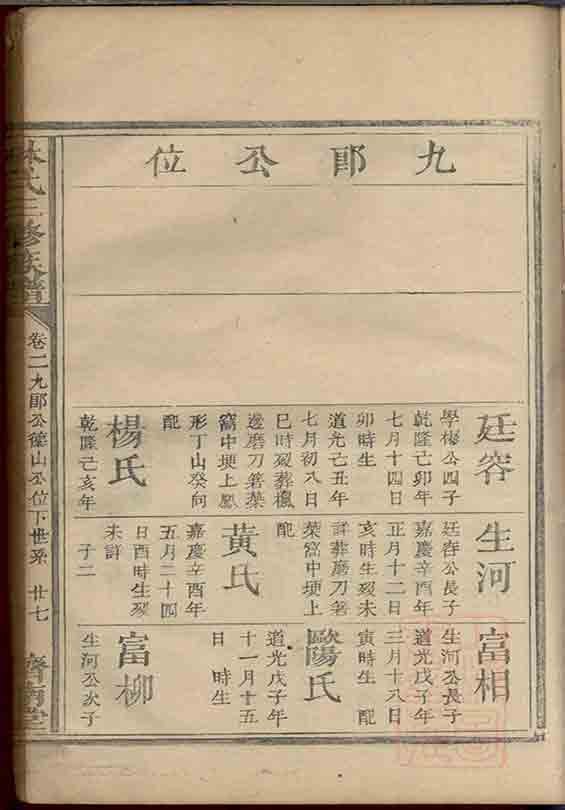 九郎公位
廷容
學梅公四子
乾隆己卯年
七月十四日
卯時生
道光己丑年
七月初八日
巳時歿葬楓
邊磨刀箬葉
窩中埂上鳳
形丁山癸向
配
楊氏
乾隆己亥年
生河
廷容公長子
嘉慶辛酉年
正月十二日
亥時生歿未
詳葬磨刀箬
葉窩中埂上
配
黃氏
嘉慶辛酉年
五月二十四
日酉時生歿
未詳
子二
富相
生河公長子
道光戊子年
三月十八日
寅時生 配
歐陽氏
道光戊子年
十一月十五
日 時生
富柳
生河公次子
林氏三修族譜
卷二九郎公德山公位下世系 廿七
齊南堂